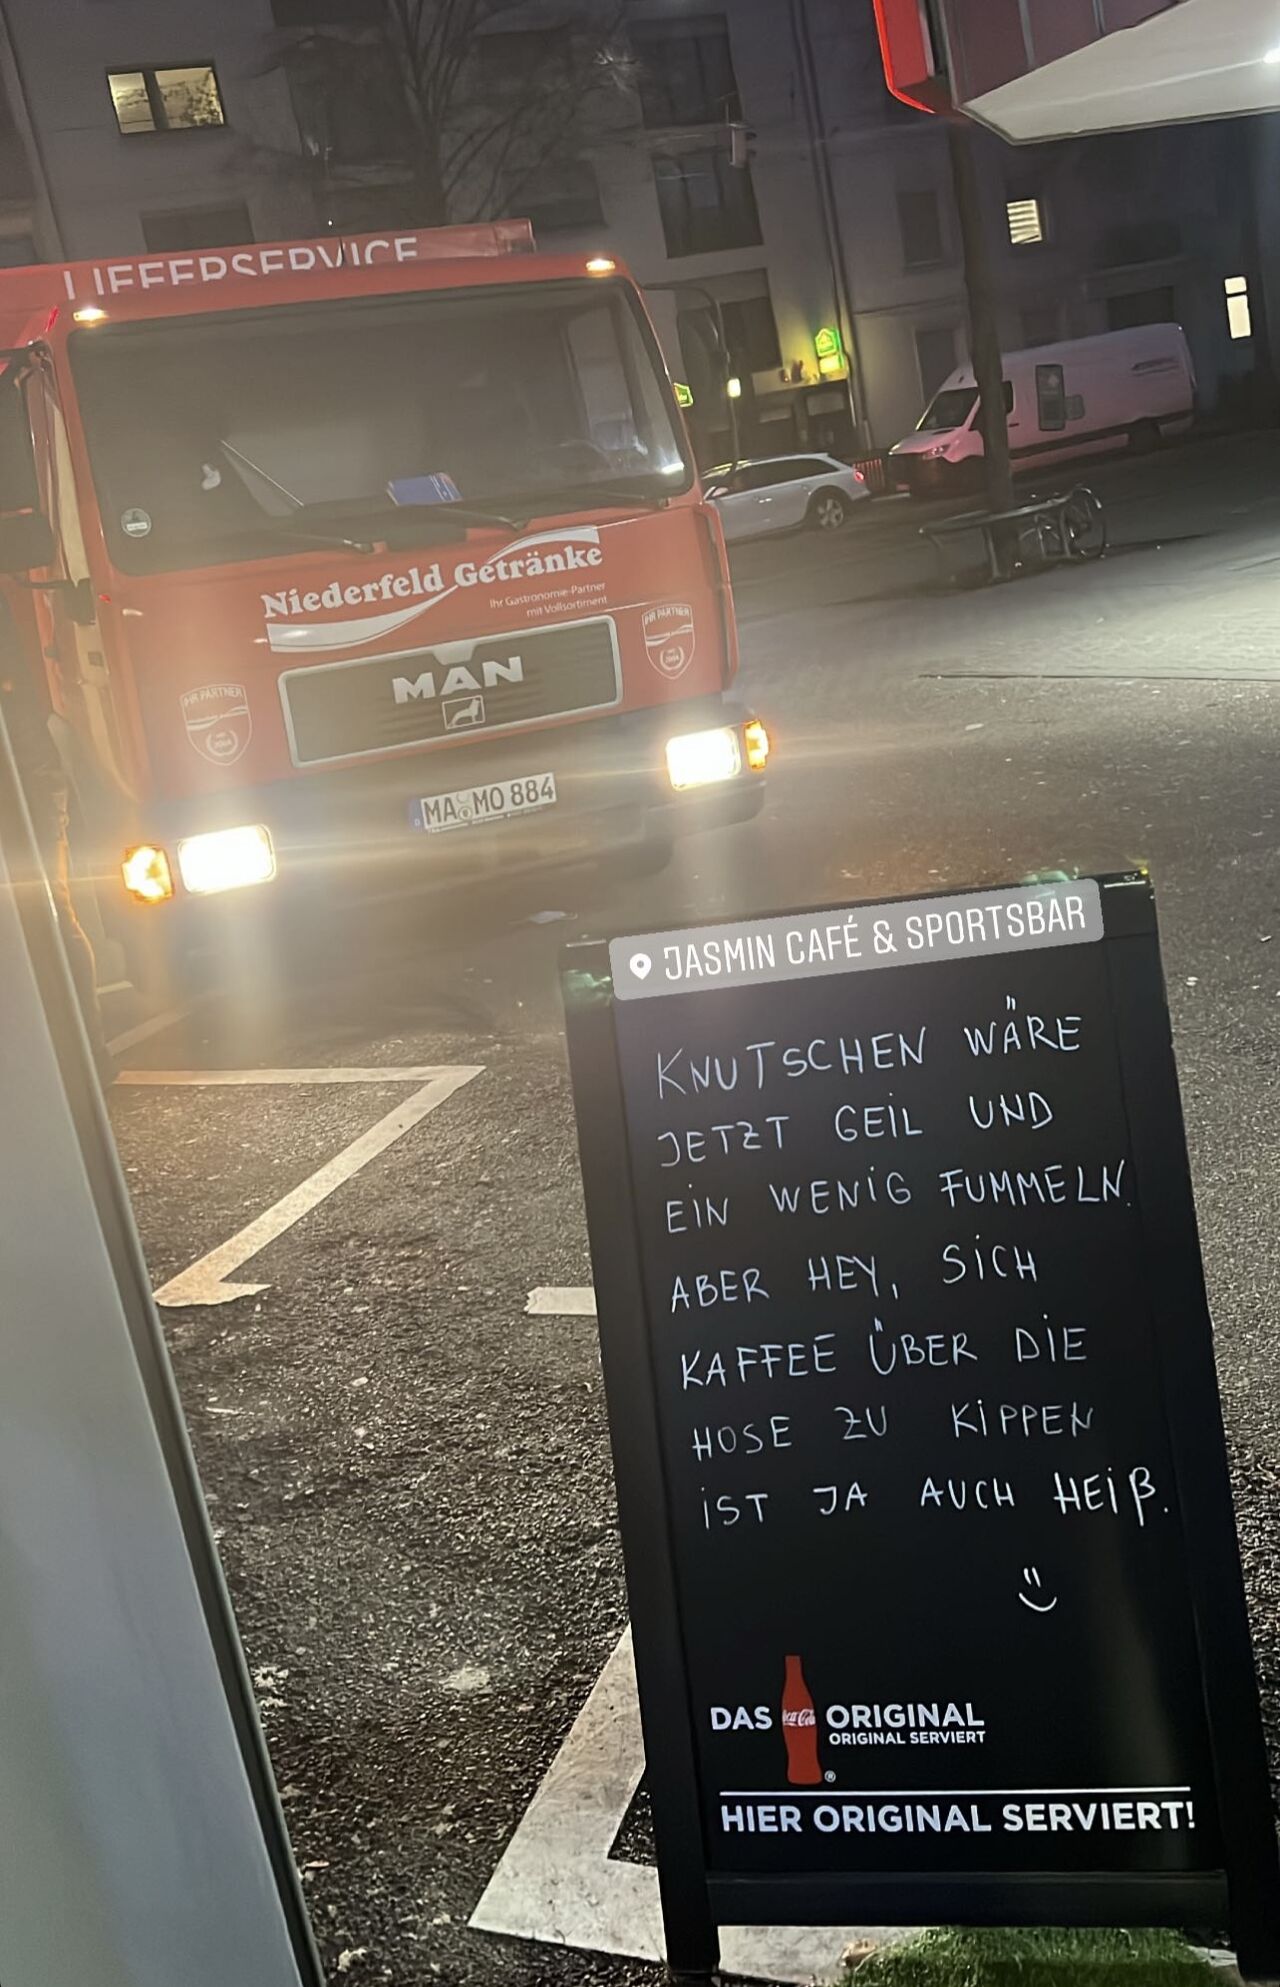 LIEFERSERVICE
Niederfeld Getränke
Ihr Gastronomie-Partner
mit Vollsortiment
IHR PARTNER
IHR PARTNER
MAN
MA MO 884
JASMIN CAFÉ & SPORTSBAR
KNUTSCHEN WÄRE
JETZT GEIL UND
EIN WENIG FUMMELN.
ABER HEY, SICH
KAFFEE ÜBER DIE
HOSE ZU KIPPEN
IST JA AUCH HEIß.
DAS Coca-Cola ORIGINAL
ORIGINAL SERVIERT
HIER ORIGINAL SERVIERT!